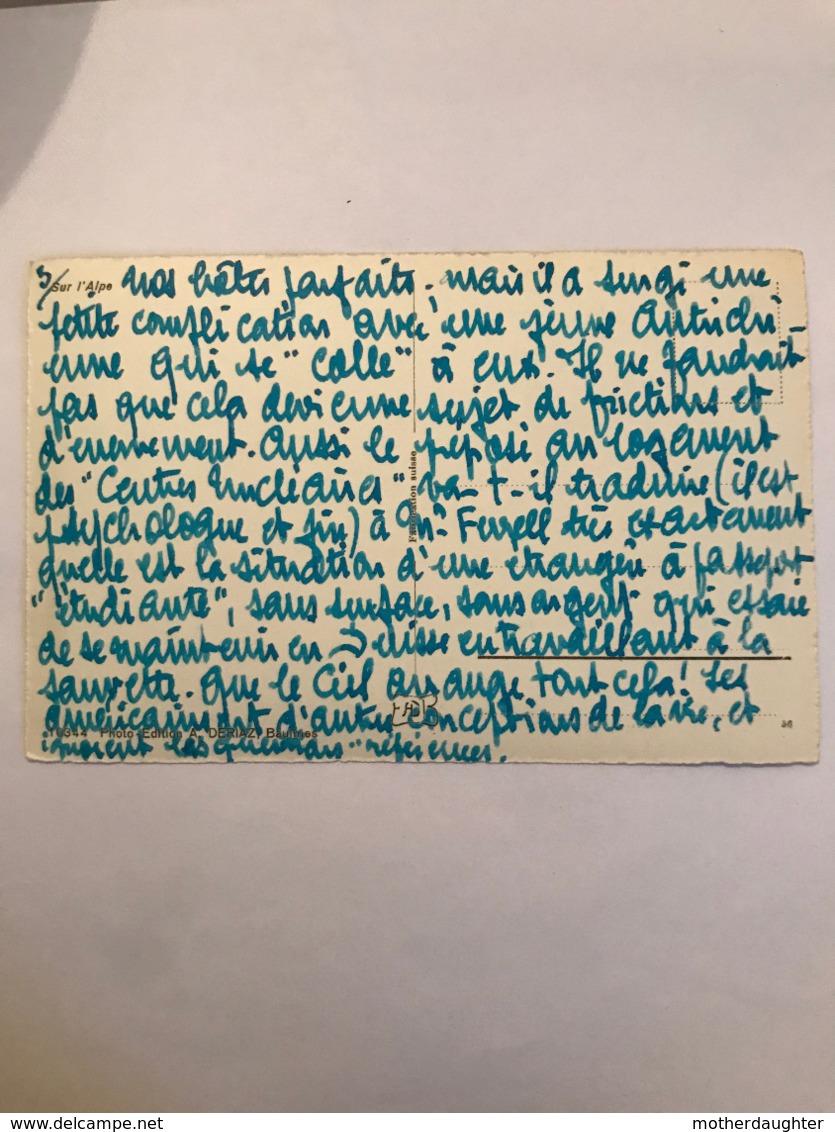 3/ Sur l'Alpe Nos hôtes parfaits, mais il a surgi une
petite complication avec une jeune Autrichi-
enne qui se "colle" à eux. Il ne faudrait
pas que cela devienne sujet de frictions et
d'énervement. Aussi le préposé au logement
des "Centres Nucléaires" va-t-il traduire (il est
psychologue et fin) à Mr. Ferrell très exactement
quelle est la situation d'une étrangère à passeport
"étudiante", sans surface, sans argent qui essaie
de se maintenir en Suisse en travaillant à la
sauvette. Que le Ciel arrange tout cela! Les
américains ont d'autres conceptions de la vie, et
ignorent les "références.
10344 Photo-Edition A. DERIAZ, Baulmes
Fabrication suisse
36
delcampe.net
motherdaughter